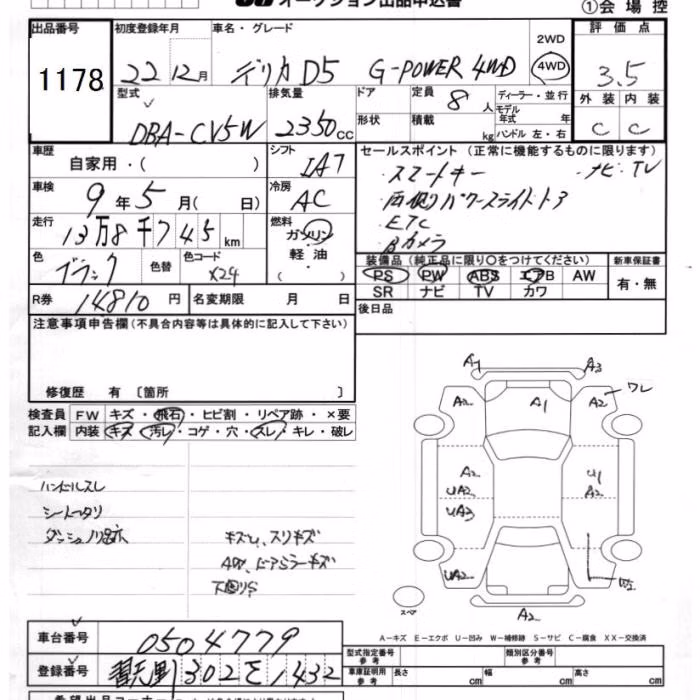 オークション出品申込書
①会場控
出品番号 初度登録年月 車名・グレード 評価点
1178 22 12月 デリカD5 G-POWER 4WD 2WD 4WD 3.5
型式 排気量 ドア 定員 8人 ディーラー・並行 外装 内装
DBA-CV5W 2350cc 形状 積載 kg モデル年式 年 ハンドル 左・右 C C
車歴 自家用・( ) シフト IA7 セールスポイント (正常に機能するものに限ります)
スマートキー ナビ・TV
車検 9年5月( 日) 冷房 AC 両側パワースライドドア
走行 13万8千745km 燃料 ガソリン 軽油 ( ) ETC
Bカメラ
色 ブラック 色替 色コード X24 装備品 (純正品に限り○をつけてください) 新車保証書
PS PW ABS エアB AW 有・無
SR ナビ TV カワ
R券 14810円 名変期限 月 日 後日品
注意事項申告欄 (不具合内容等は具体的に記入して下さい)
修復歴 有 〔箇所 〕
検査員 FW キズ・飛石・ヒビ割・リペア跡・×要
記入欄 内装 キズ・汚レ・コゲ・穴・スレ・キレ・破レ
ハンドルスレ
シートヘタリ
ダッシュノリ跡
キズU、スリキズ
下回りサ
A1 A3
A2 A1 A2 ワレ
A2 U1
UA2 A2
UA3
UA2 W2
スペア
A2
A-キズ E-エクボ U-凹み W-補修跡 S-サビ C-腐食 XX-交換済
車台番号 0504779
型式指定番号 参考 類別区分番号 参考
登録番号 302 1432
車庫証明用 参考 長さ cm 幅 cm 高さ cm
希望出品コーナー